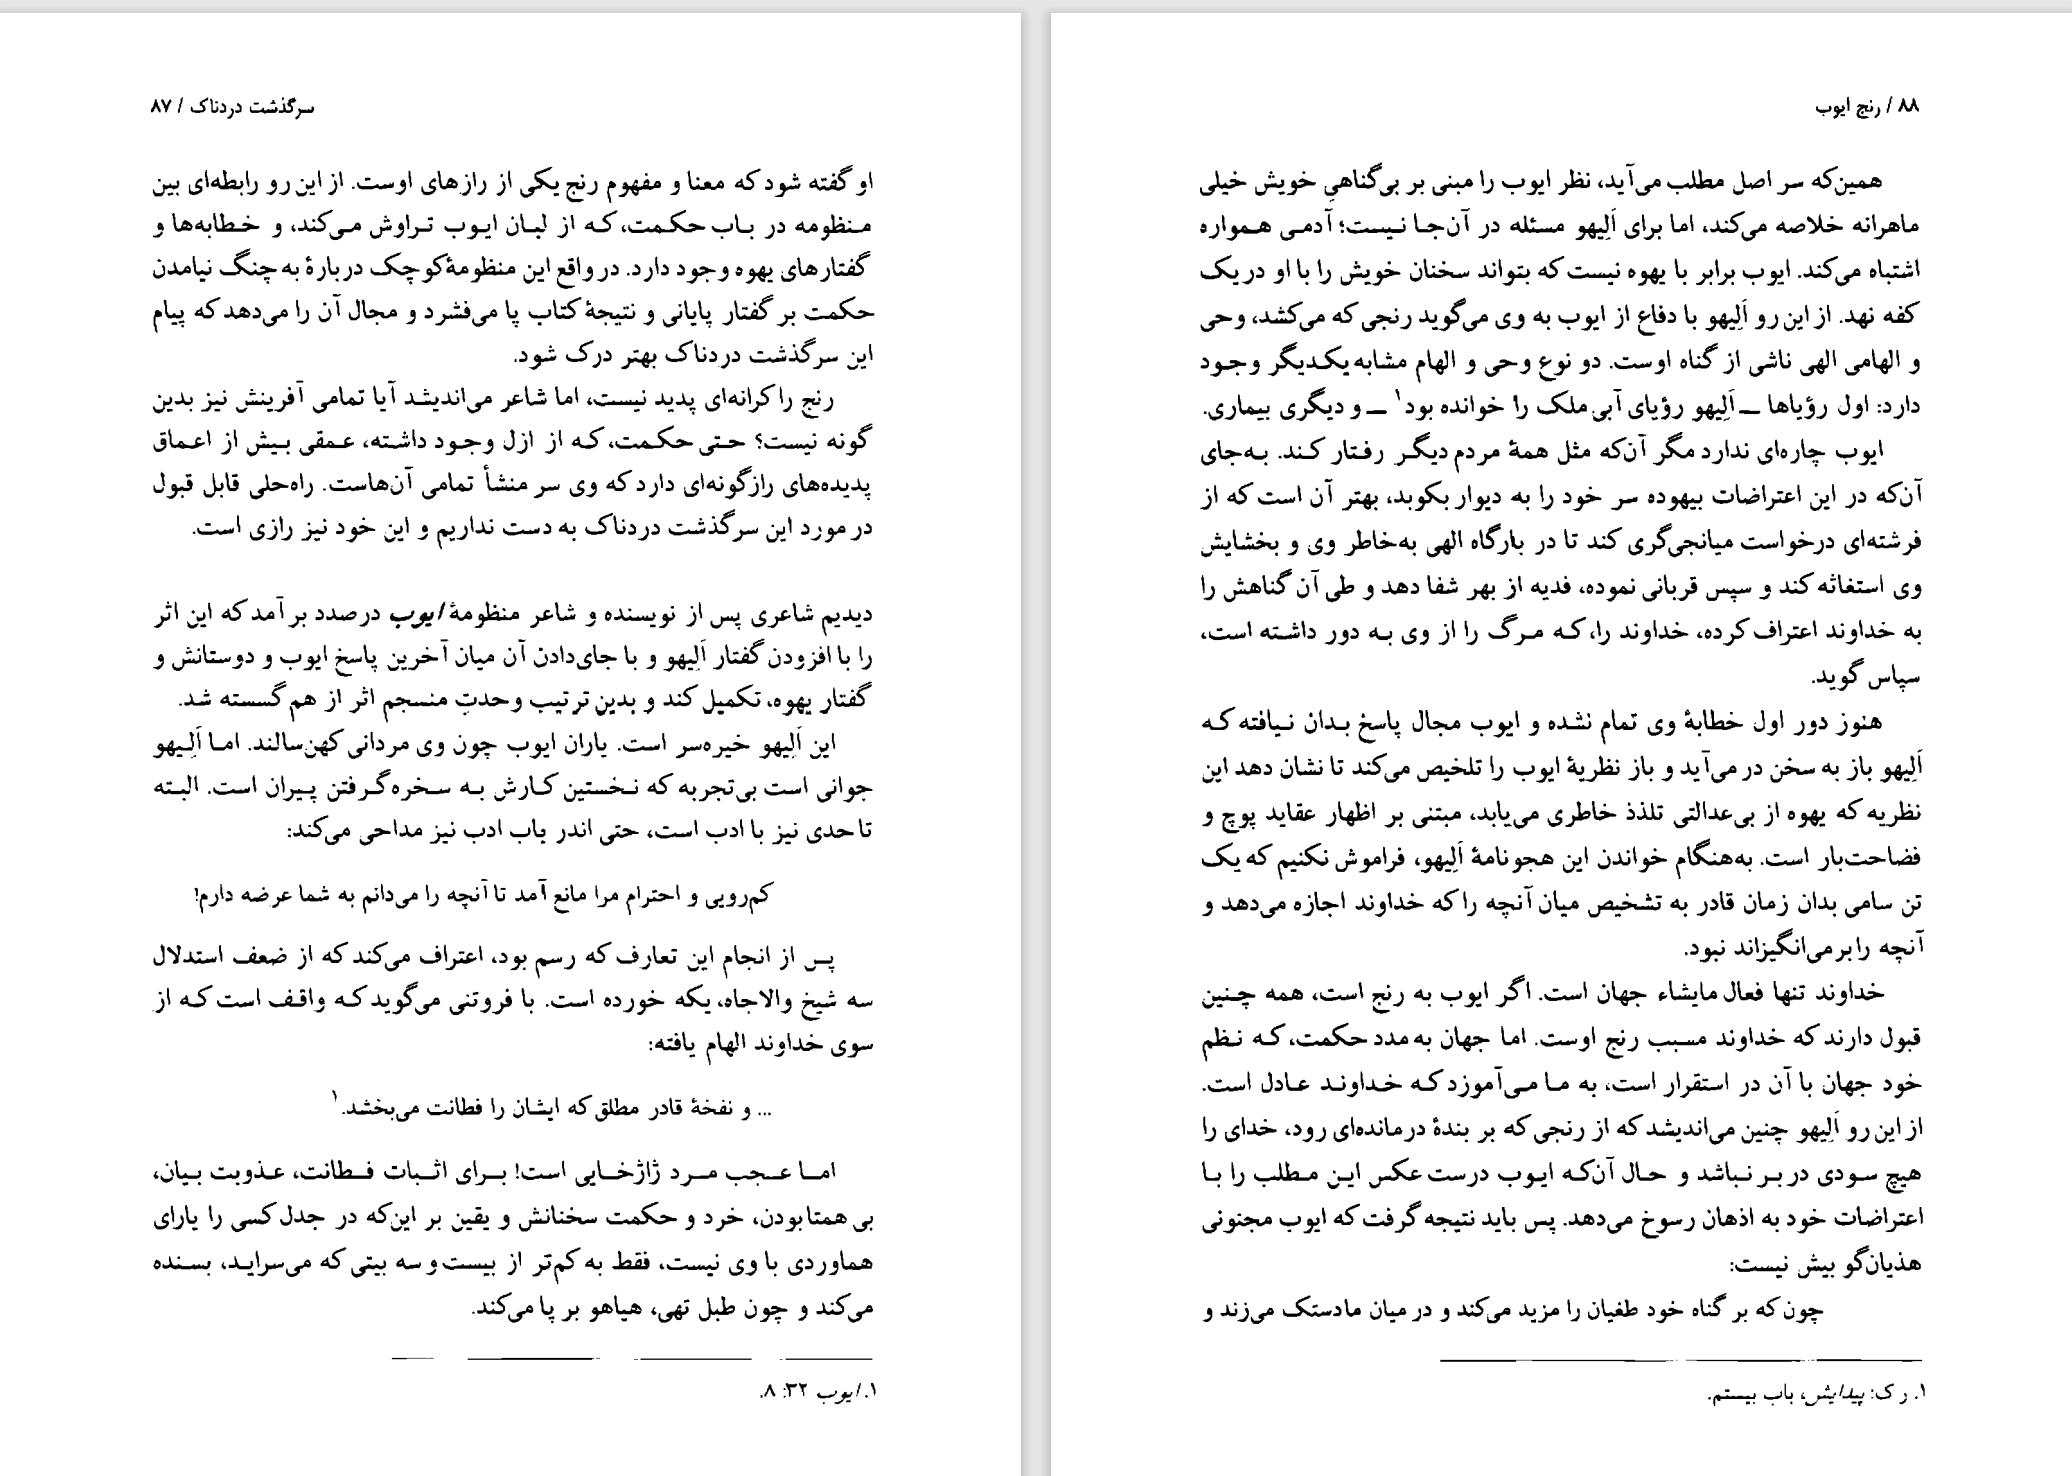 سرگذشت دردناک / ۸۷
او گفته شود که معنا و مفهوم رنج یکی از رازهای اوست. از این رو رابطه‌ای بین
منظومه در باب حکمت، که از لبان ایوب تراوش می‌کند، و خطابه‌ها و
گفتارهای یهوه وجود دارد. در واقع این منظومهٔ کوچک دربارهٔ به چنگ نیامدن
حکمت بر گفتار پایانی و نتیجهٔ کتاب پا می‌فشرد و مجال آن را می‌دهد که پیام
این سرگذشت دردناک بهتر درک شود.
رنج را کرانه‌ای پدید نیست، اما شاعر می‌اندیشد آیا تمامی آفرینش نیز بدین
گونه نیست؟ حتی حکمت، که از ازل وجود داشته، عمقی بیش از اعماق
پدیده‌های رازگونه‌ای دارد که وی سر منشأ تمامی آن‌هاست. راه‌حلی قابل قبول
در مورد این سرگذشت دردناک به دست نداریم و این خود نیز رازی است.
دیدیم شاعری پس از نویسنده و شاعر منظومهٔ ایوب درصدد برآمد که این اثر
را با افزودن گفتار اَلِیهو و با جای‌دادن آن میان آخرین پاسخ ایوب و دوستانش و
گفتار یهوه، تکمیل کند و بدین ترتیب وحدتِ منسجم اثر از هم گسسته شد.
این اَلِیهو خیره‌سر است. یاران ایوب چون وی مردانی کهن‌سالند. اما اَلِیهو
جوانی است بی‌تجربه که نخستین کارش به سخره‌گرفتن پیران است. البته
تا حدی نیز با ادب است، حتی اندر باب ادب نیز مداحی می‌کند:
کم‌رویی و احترام مرا مانع آمد تا آنچه را می‌دانم به شما عرضه دارم!
پس از انجام این تعارف که رسم بود، اعتراف می‌کند که از ضعف استدلال
سه شیخ والاجاه، یکه خورده است. با فروتنی می‌گوید که واقف است که از
سوی خداوند الهام یافته:
... و نفخهٔ قادر مطلق که ایشان را فطانت می‌بخشد.۱
اما عجب مرد ژاژخایی است! برای اثبات فطانت، عذوبت بیان،
بی همتا بودن، خرد و حکمت سخنانش و یقین بر این‌که در جدل کسی را یارای
هماوردی با وی نیست، فقط به کم‌تر از بیست و سه بیتی که می‌سراید، بسنده
می‌کند و چون طبل تهی، هیاهو بر پا می‌کند.
۱. ایوب ۳۲: ۸.
۸۸ / رنج ایوب
همین‌که سر اصل مطلب می‌آید، نظر ایوب را مبنی بر بی‌گناهیِ خویش خیلی
ماهرانه خلاصه می‌کند، اما برای اَلِیهو مسئله در آن‌جا نیست؛ آدمی همواره
اشتباه می‌کند. ایوب برابر با یهوه نیست که بتواند سخنان خویش را با او در یک
کفه نهد. از این رو اَلِیهو با دفاع از ایوب به وی می‌گوید رنجی که می‌کشد، وحی
و الهامی الهی ناشی از گناه اوست. دو نوع وحی و الهام مشابه یکدیگر وجود
دارد: اول رؤیاها ــ اَلِیهو رؤیای آبی‌ملک را خوانده بود۱ ــ و دیگری بیماری.
ایوب چاره‌ای ندارد مگر آن‌که مثل همهٔ مردم دیگر رفتار کند. به‌جای
آن‌که در این اعتراضات بیهوده سر خود را به دیوار بکوبد، بهتر آن است که از
فرشته‌ای درخواست میانجی‌گری کند تا در بارگاه الهی به‌خاطر وی و بخشایش
وی استغاثه کند و سپس قربانی نموده، فدیه از بهر شفا دهد و طی آن گناهش را
به خداوند اعتراف کرده، خداوند را، که مرگ را از وی به دور داشته است،
سپاس گوید.
هنوز دور اول خطابهٔ وی تمام نشده و ایوب مجال پاسخ بدان نیافته که
اَلِیهو باز به سخن در می‌آید و باز نظریهٔ ایوب را تلخیص می‌کند تا نشان دهد این
نظریه که یهوه از بی‌عدالتی تلذذ خاطری می‌یابد، مبتنی بر اظهار عقاید پوچ و
فضاحت‌بار است. به‌هنگام خواندن این هجونامهٔ اَلِیهو، فراموش نکنیم که یک
تن سامی بدان زمان قادر به تشخیص میان آنچه را که خداوند اجازه می‌دهد و
آنچه را برمی‌انگیزاند نبود.
خداوند تنها فعال مایشاء جهان است. اگر ایوب به رنج است، همه چنین
قبول دارند که خداوند مسبب رنج اوست. اما جهان به مدد حکمت، که نظم
خود جهان با آن در استقرار است، به ما می‌آموزد که خداوند عادل است.
از این رو اَلِیهو چنین می‌اندیشد که از رنجی که بر بندهٔ درمانده‌ای رود، خدای را
هیچ سودی در بر نباشد و حال آن‌که ایوب درست عکس این مطلب را با
اعتراضات خود به اذهان رسوخ می‌دهد. پس باید نتیجه گرفت که ایوب مجنونی
هذیان‌گو بیش نیست:
چون که بر گناه خود طغیان را مزید می‌کند و در میان ما دستک می‌زند و
۱. ر ک: پیدایش، باب بیستم.